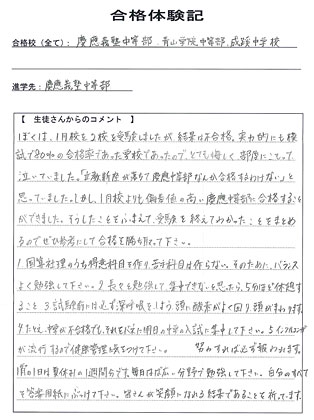 合格体験記
合格校(全て): 慶應義塾中等部 青山学院中等部 成蹊中学校
進学先: 慶應義塾中等部
【 生徒さんからのコメント 】
ぼくは、1月校を2校を受験しましたが、結果は不合格。実力的にも模
試で80%の合格率であった学校であったので、とても悔しく部屋にこもって
泣いていました。「立教新座が落ちて慶應中等部なんか合格するわけない」と
思っていました。しかし、1月校よりも偏差値の高い慶應中等部に合格すること
ができました。そうしたことをふまえて、受験を終えてわかったことをまとめ
るのでぜひ参考にして合格を勝ち取って下さい。
1 国算社理のうち得意科目を作り苦手科目は作らない。そのために、バランス
よく勉強して下さい。2 長々と勉強して集中できないと思ったら、5分ほど休憩す
ること 3 試験前には必ず深呼吸をしましょう。頭に酸素がよく回り頭がまわります。
4 たとえ、
不合格でも、それをバネに明日の
入試に集中して下さい。5 インフルエンザ
が流行するので健康管理に気をつけて下さい。 努力すれば必ず報われます。
1月1日は夏休みの1週間分です。毎日はば広い分野で勉強して下さい。自分のすべて
を答案用紙にぶつけて下さい。皆さんが笑顔になれる結果であることを祈ってます。